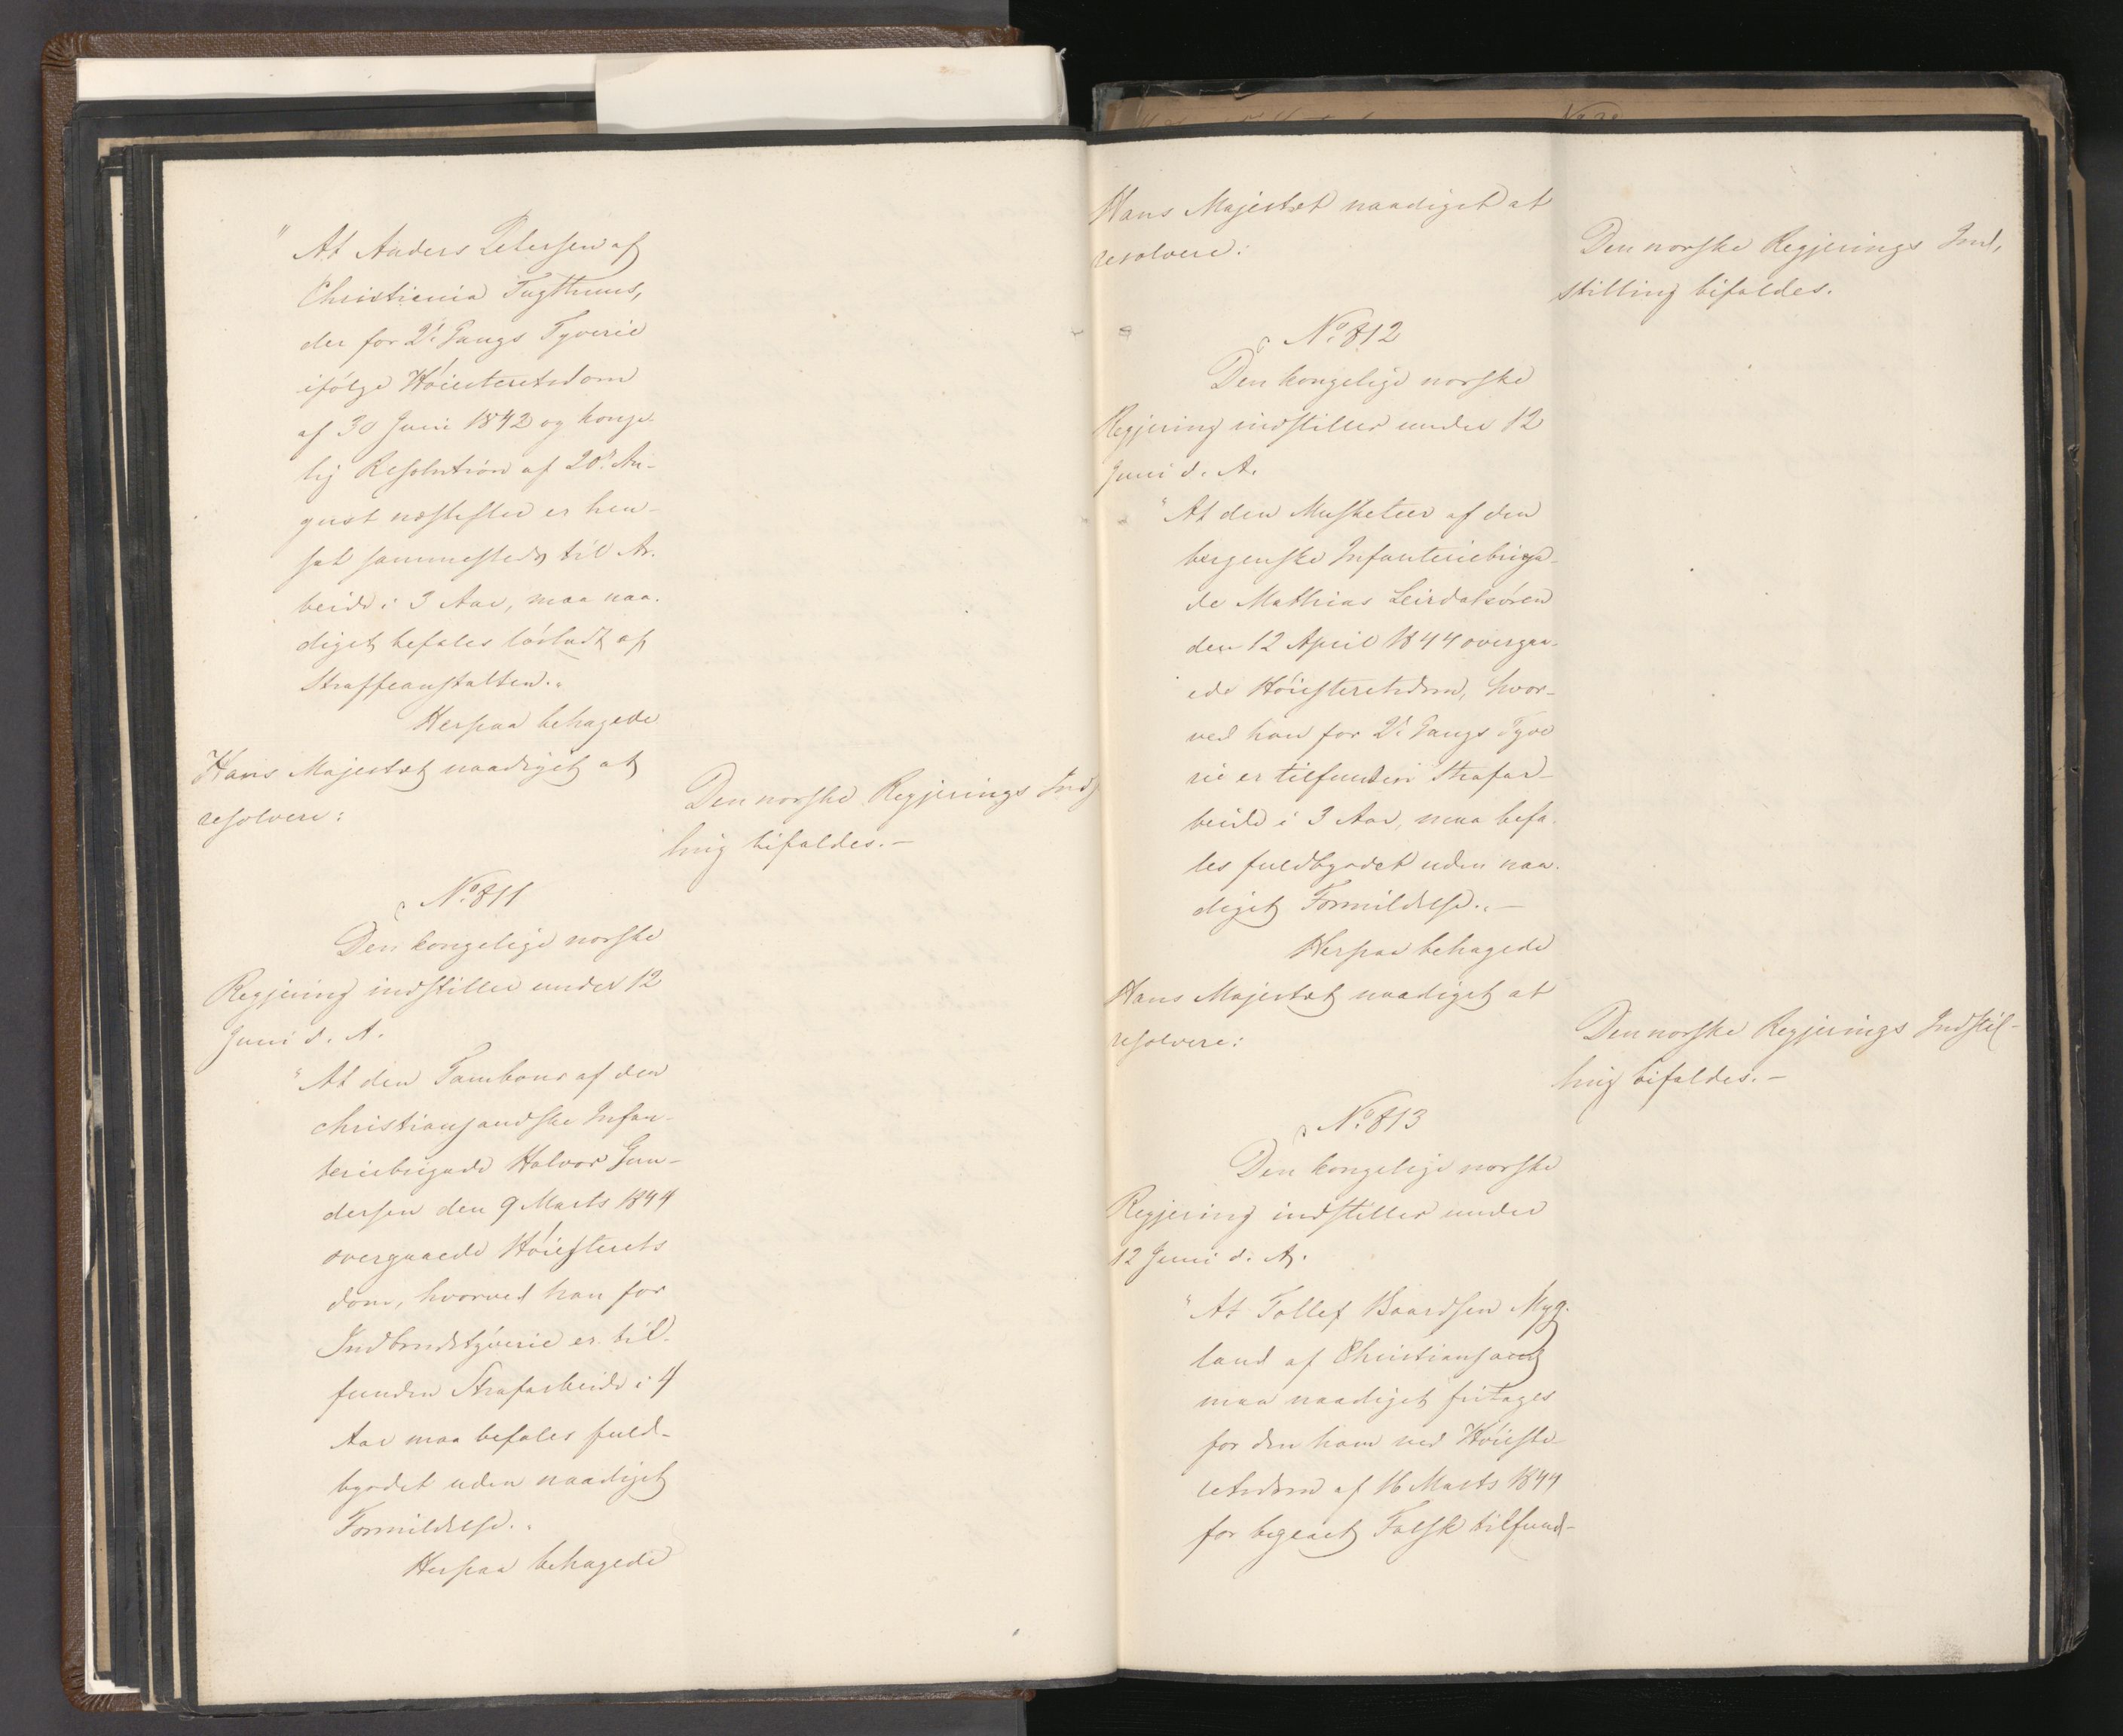 " At Anders Petersen af
Christiania Tugthuus,
der for 2: Gangs Tyverie
ifølge Høiesteretsdom
af 30 Juni 1842 og konge-
lig Resolution af 20: Au-
gust næstefter er hen-
sat sammesteds til Ar-
beide i 3 Aar, maa naa-
digst befales løsladt af
Straffeanstalten."
Herpaa behagede
Hans Majestæt naadigst at
resolvere:
Den norske Regjerings Ind
ling bifaldes.—
No. 811
Den kongelige norske
Regjering indstiller under 12
Juni d. A.
"At den Tambour af den
christiansandske Infan-
teriebrigade Halvor Gun-
dersen den 9 Marts 1844
overgaaede Høiesterets
dom, hvorved han for
Indbrudstyverie er til-
funden Strafarbeide i 4
Aar maa befales fuld-
byrdet uden naadigst
Formildelse."
Herpaa behagede
Hans Majestæt naadigst at
resolvere:
Den norske Regjerings Ind,
stilling bifaldes.
No. 812
Den kongelige norske
Regjering indstiller under 12
Juni d. A.
"At den Musketeer af den
bergenske Infanteriebriga-
de Mathias Leirdalsøren
den 12 April 1844 overgaa-
ede Høiesteretsdom, hvor-
ved han for 2: Gangs Tyve
rie er tilfunden Strafar-
beide i 3 Aar, maa befa-
les fuldbyrdet uden naa-
digst Formildelse."—
Herpaa behagede
Hans Majestæt naadigst at
resolvere:
Den norske Regjerings Indstil-
ling bifaldes.—
No. 813
Den kongelige norske
Regjering indstiller under
12 Juni d. A.
"At Tollef Baardsen Myg-
land af Christiansand
maa naadigst fritages
for den ham ved Høieste-
retsdom af 16 Marts 1844
for begaaet Falsk tilfund-